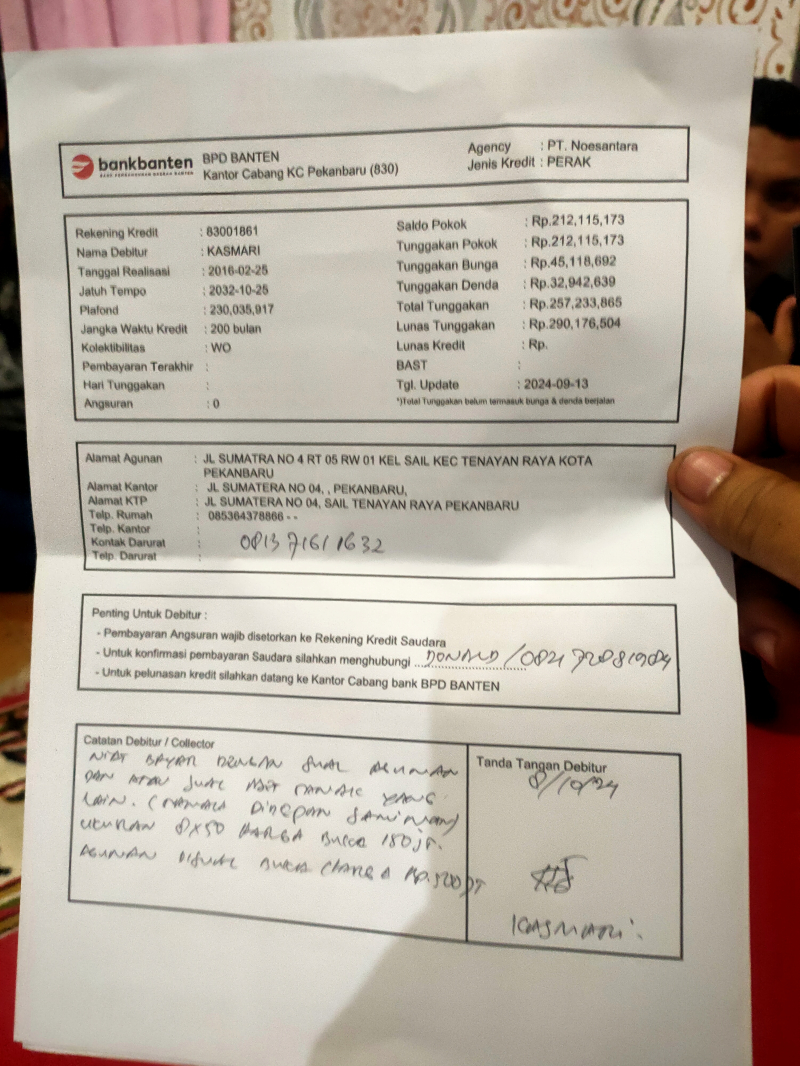 bankbanten
BPD BANTEN
Kantor Cabang KC Pekanbaru (830)
Agency : PT. Noesantara
Jenis Kredit : PERAK
Rekening Kredit : 83001861
Nama Debitur : KASMARI
Tanggal Realisasi : 2016-02-25
Jatuh Tempo : 2032-10-25
Plafond : 230,035,917
Jangka Waktu Kredit : 200 bulan
Kolektibilitas : WO
Pembayaran Terakhir :
Hari Tunggakan :
Angsuran : 0
Saldo Pokok : Rp.212,115,173
Tunggakan Pokok : Rp.212,115,173
Tunggakan Bunga : Rp.45,118,692
Tunggakan Denda : Rp.32,942,639
Total Tunggakan : Rp.257,233,865
Lunas Tunggakan : Rp.290,176,504
Lunas Kredit : Rp.
BAST :
Tgl. Update : 2024-09-13
*)Total Tunggakan belum termasuk bunga & denda berjalan
Alamat Agunan : JL SUMATRA NO 4 RT 05 RW 01 KEL SAIL KEC TENAYAN RAYA KOTA
PEKANBARU
Alamat Kantor : JL SUMATERA NO 04, , PEKANBARU,
Alamat KTP : JL SUMATERA NO 04, SAIL TENAYAN RAYA PEKANBARU
Telp. Rumah : 085364378866 - -
Telp. Kantor :
Kontak Darurat : 0813 7161 1632
Telp. Darurat :
Penting Untuk Debitur :
- Pembayaran Angsuran wajib disetorkan ke Rekening Kredit Saudara
- Untuk konfirmasi pembayaran Saudara silahkan menghubungi DONALD /
- Untuk pelunasan kredit silahkan datang ke Kantor Cabang bank BPD BANTEN
Catatan Debitur / Collector
NIAT BAYAR DENGAN JUAL AGUNAN
DAN ATAU JUAL ASET YANG
LAIN.
UKURAN 8X50 HARGA BUKA 180 jt.
AGUNAN DIJUAL BUKA HARGA Rp.500 jt
Tanda Tangan Debitur
8/10/24
KASMARI